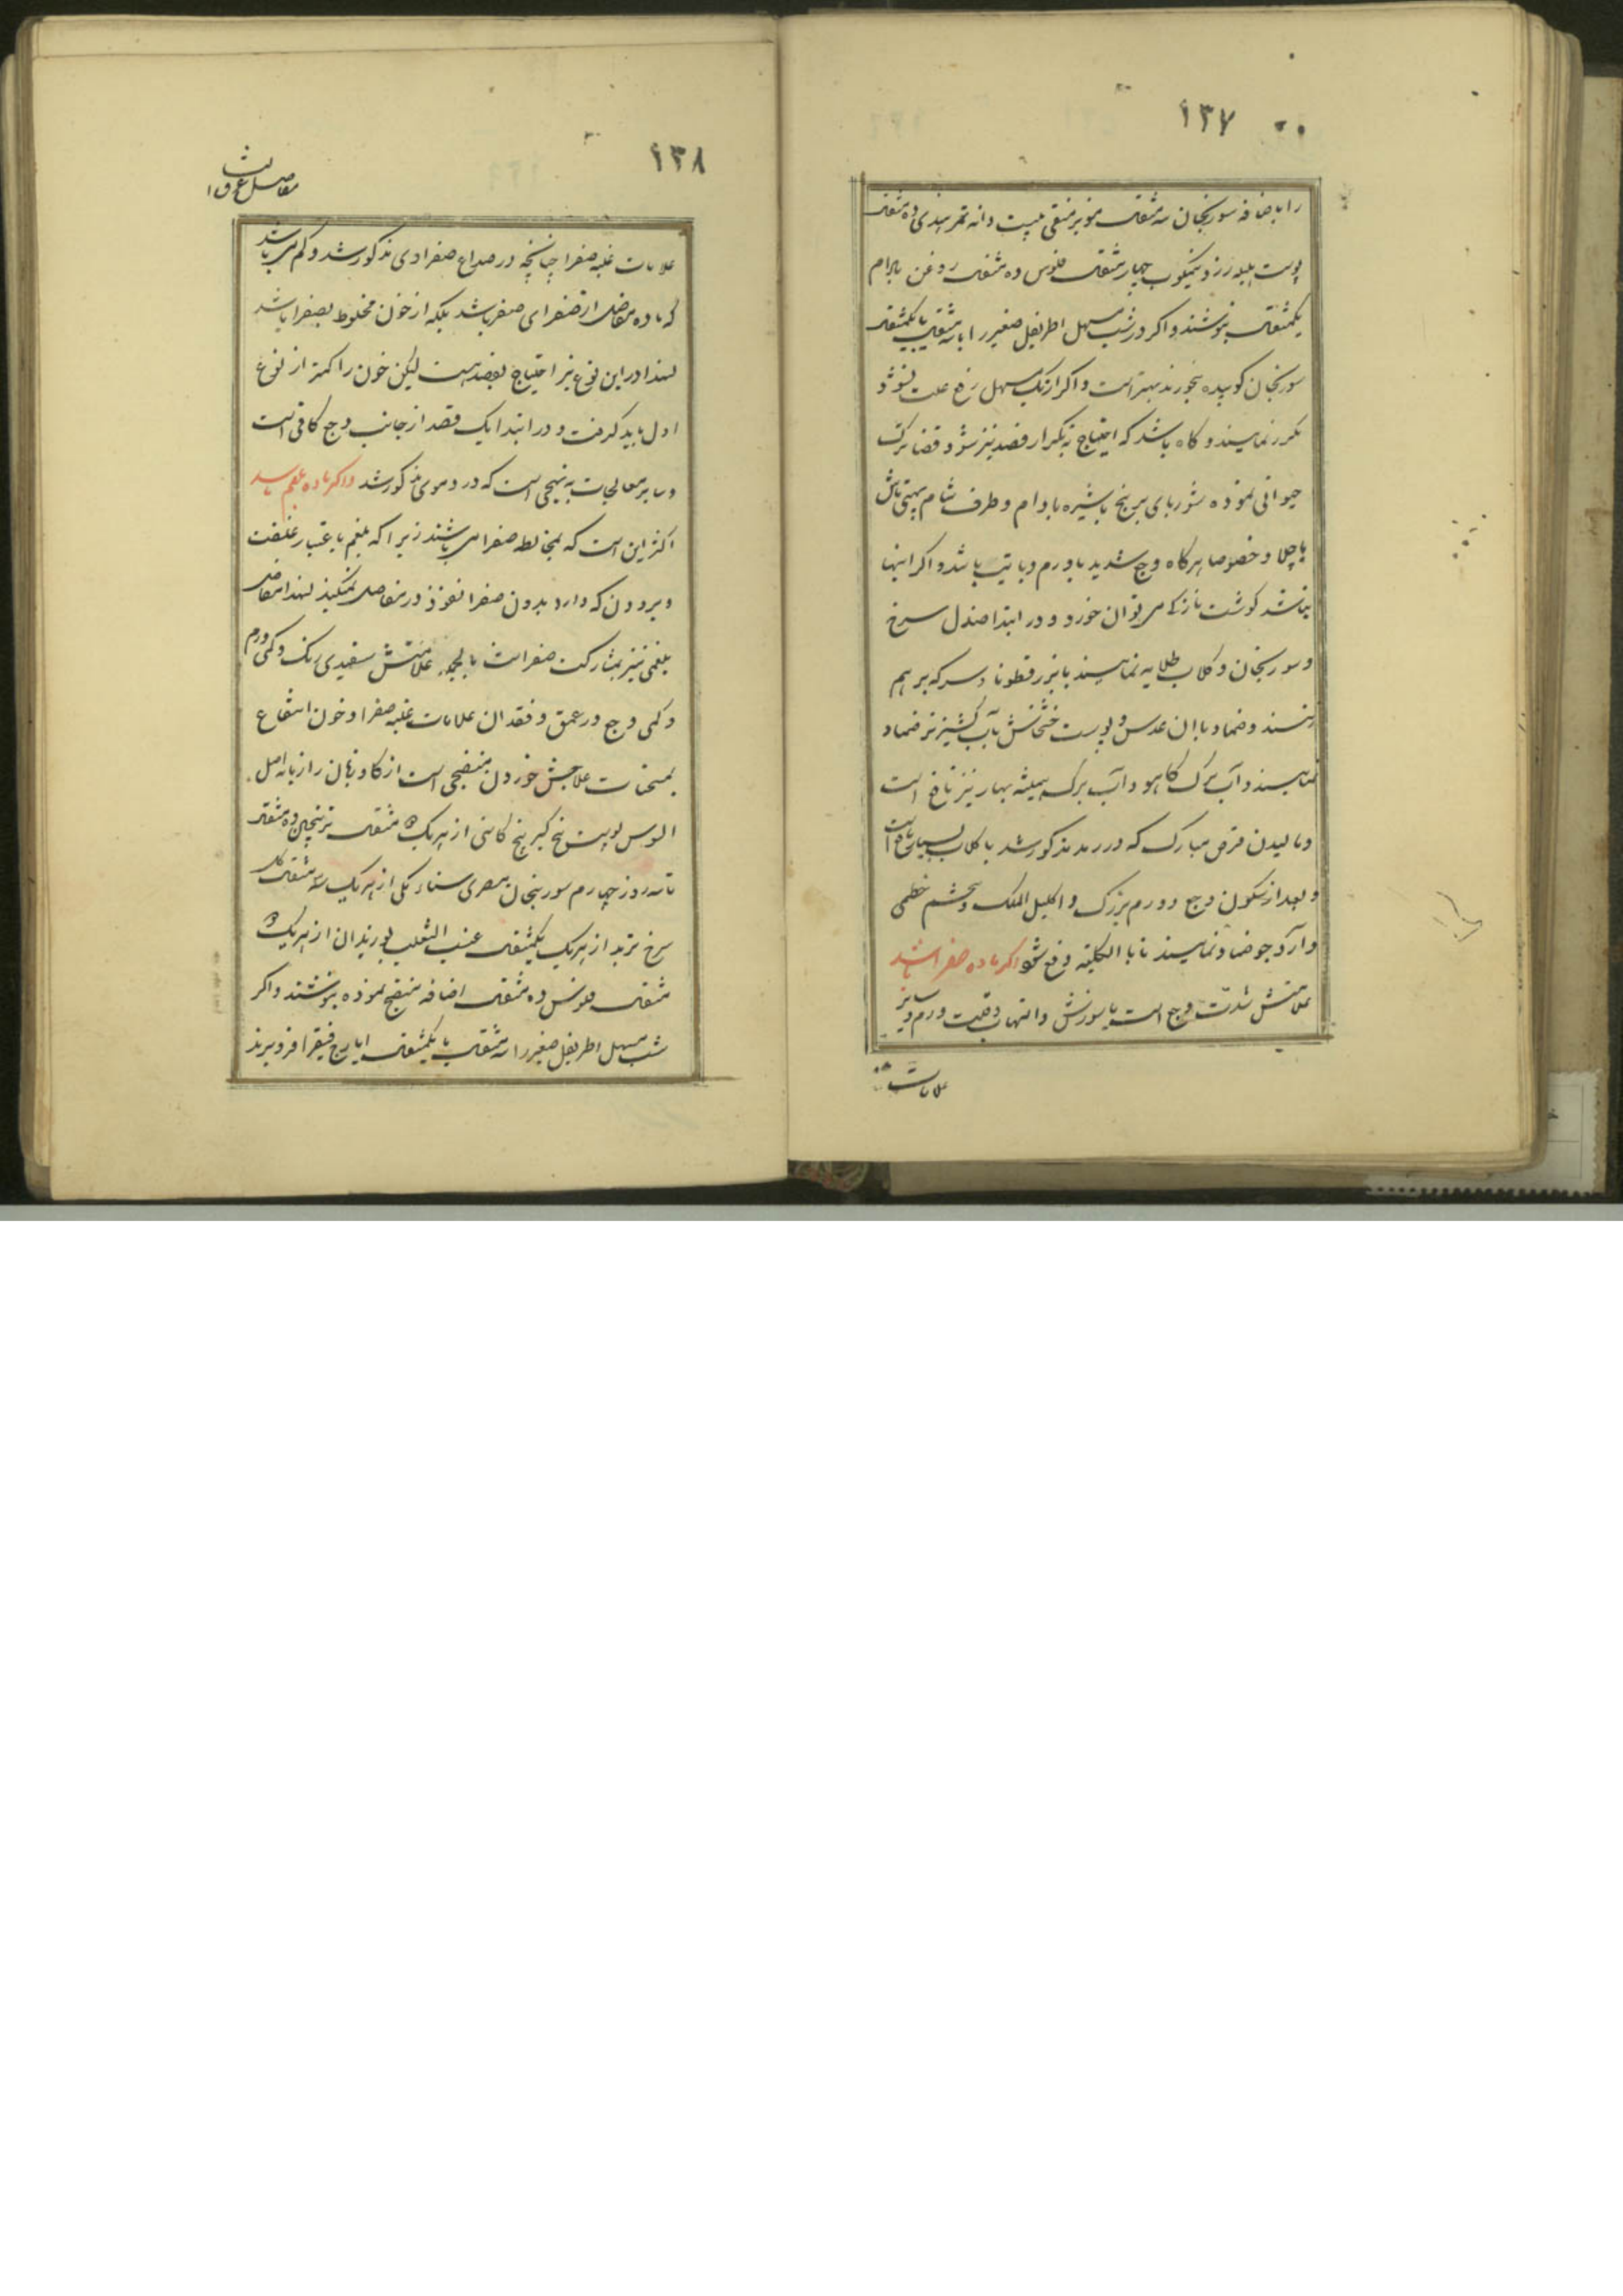 ١٣٧
را باضافه سورنجان سه مثقال مویز منقی بیست دانه تمر هندی ده مثقال
پوست هلیله زرد نیمکوب چهار مثقال فلوس ده مثقال روغن بادام
یکمثقال بنوشند و اکر در شب مسهل اطریفل صغیر را با سه مثقال یا یکمثقال
سورنجان کوبیده بخورند بهتر است و اکر از یک مسهل رفع علت نشود
مکرر نمایند و کاه باشد که احتیاج به تکرار فصد نیز شود و غذا ترک
حیوانی نموده شوربای برنج با شیره بادام و طرف شام بهتی ماش
یا چلاو خصوصا هرکاه وجع شدید با ورم و با تب باشد و اکر اینها
نباشد کوشت نازک می توان خورد و در ابتدا صندل سرخ
و سورنجان و کلاب طلایه نمایند یا بزرقطونا و سرکه بر هم
زنند و ضماد با ان عدس و پوست خشخاش بآب کشنیز تر ضماد
نمایند و آب برک کاهو و آب برک همیشه بهار نیز نافع است
و مالیدن قرص مبارک که در رمد مذکور شد با کلاب بسیار نافع است
و بعد از سکون وجع و ورم بزرک و اکلیل الملک و تخم خطمی
و آرد جو ضماد نمایند تا بالکلیه رفع شود اکر ماده صفرا باشد
علامتش شدت وجع است با سوزش و التهاب و قلت ورم و سایر
علامات
١٣٨
مفاصل عرق
علامات غلبه صفرا چنانچه در صداع صفراوی مذکور شد و کم می باشد
که ماده مفاصل از صفرای صرف باشد بلکه از خون مخلوط بصفرا باشد
لهذا در این نوع نیز احتیاج بفصد هست لیکن خون را کمتر از نوع
اول باید کرفت و در ابتدا یک فصد از جانب وجع کافی است
و سایر معالجات به نهجی است که در دموی مذکور شد و اکر ماده بلغم باشد
اکثر این است که بمخالطه صفرا می باشند زیرا که بلغم باعتبار غلظت
و برودن که دارد بدون صفرا نفوذ در مفاصل نمیکند لهذا مفاصل
بلغمی نیز بمشارکت صفراست بالجمله علامتش سفیدی رنک و کمی ورم
و کمی وجع در عمق و فقدان علامات غلبه صفرا و خون انتفاع
بمسخنات علاجش خوردن منضجی است از کاوزبان رازیانه اصل
السوس پوست بیخ کبر بیخ کاسنی از هریک مثقال ترنجبین ده مثقال
تا سه روز چهارم سورنجان مصری سناء مکی از هریک سه مثقال کل
سرخ تربد از هریک یکمثقال عنب الثعلب بوزیدان از هریک
مثقال فلوس ده مثقال اضافه منضج نموده بنوشند و اکر
شب مسهل اطریفل صغیر را سه مثقال با یکمثقال ایارج فیقرا فرو برند